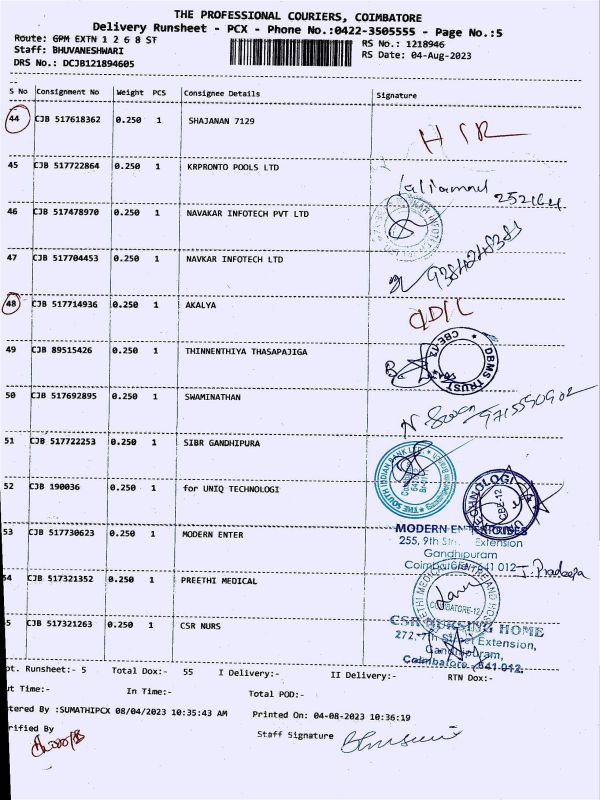 THE PROFESSIONAL COURIERS, COIMBATORE
Delivery Runsheet - PCX - Phone No.:0422-3505555 - Page No.:5
Route: GPM EXTN 1 2 6 8 ST RS No.: 1218946
Staff: BHUVANESHWARI RS Date: 04-Aug-2023
DRS No.: DCJB121894605
S No Consignment No Weight PCS Consignee Details Signature
44 CJB 517618362 0.250 1 SHAJANAN 7129
45 CJB 517722864 0.250 1 KRPRONTO POOLS LTD
46 CJB 517478970 0.250 1 NAVAKAR INFOTECH PVT LTD
47 CJB 517704453 0.250 1 NAVKAR INFOTECH LTD
48 CJB 517714936 0.250 1 AKALYA
49 CJB 89515426 0.250 1 THINNENTHIYA THASAPAJIGA
DBMS TRUST * CBE-12 *
50 CJB 517692895 0.250 1 SWAMINATHAN
51 CJB 517722253 0.250 1 SIBR GANDHIPURA
THE SOUTH INDIAN BANK LTD.
52 CJB 190036 0.250 1 for UNIQ TECHNOLOGI
CBE-12
53 CJB 517730623 0.250 1 MODERN ENTER
MODERN
255, 9th Extension
Gandhipuram
641 012 J. Pradeepa
54 CJB 517321352 0.250 1 PREETHI MEDICAL
COIMBATORE-12
55 CJB 517321263 0.250 1 CSR NURS
CSR NURSING HOME
272, 7th Street Extension,
Gandhipuram,
Coimbatore 641 012.
pt. Runsheet:- 5 Total Dox:- 55 I Delivery:- II Delivery:- RTN Dox:-
ut Time:- In Time:- Total POD:-
tered By :SUMATHIPCX 08/04/2023 10:35:43 AM Printed On: 04-08-2023 10:36:19
rified By Staff Signature